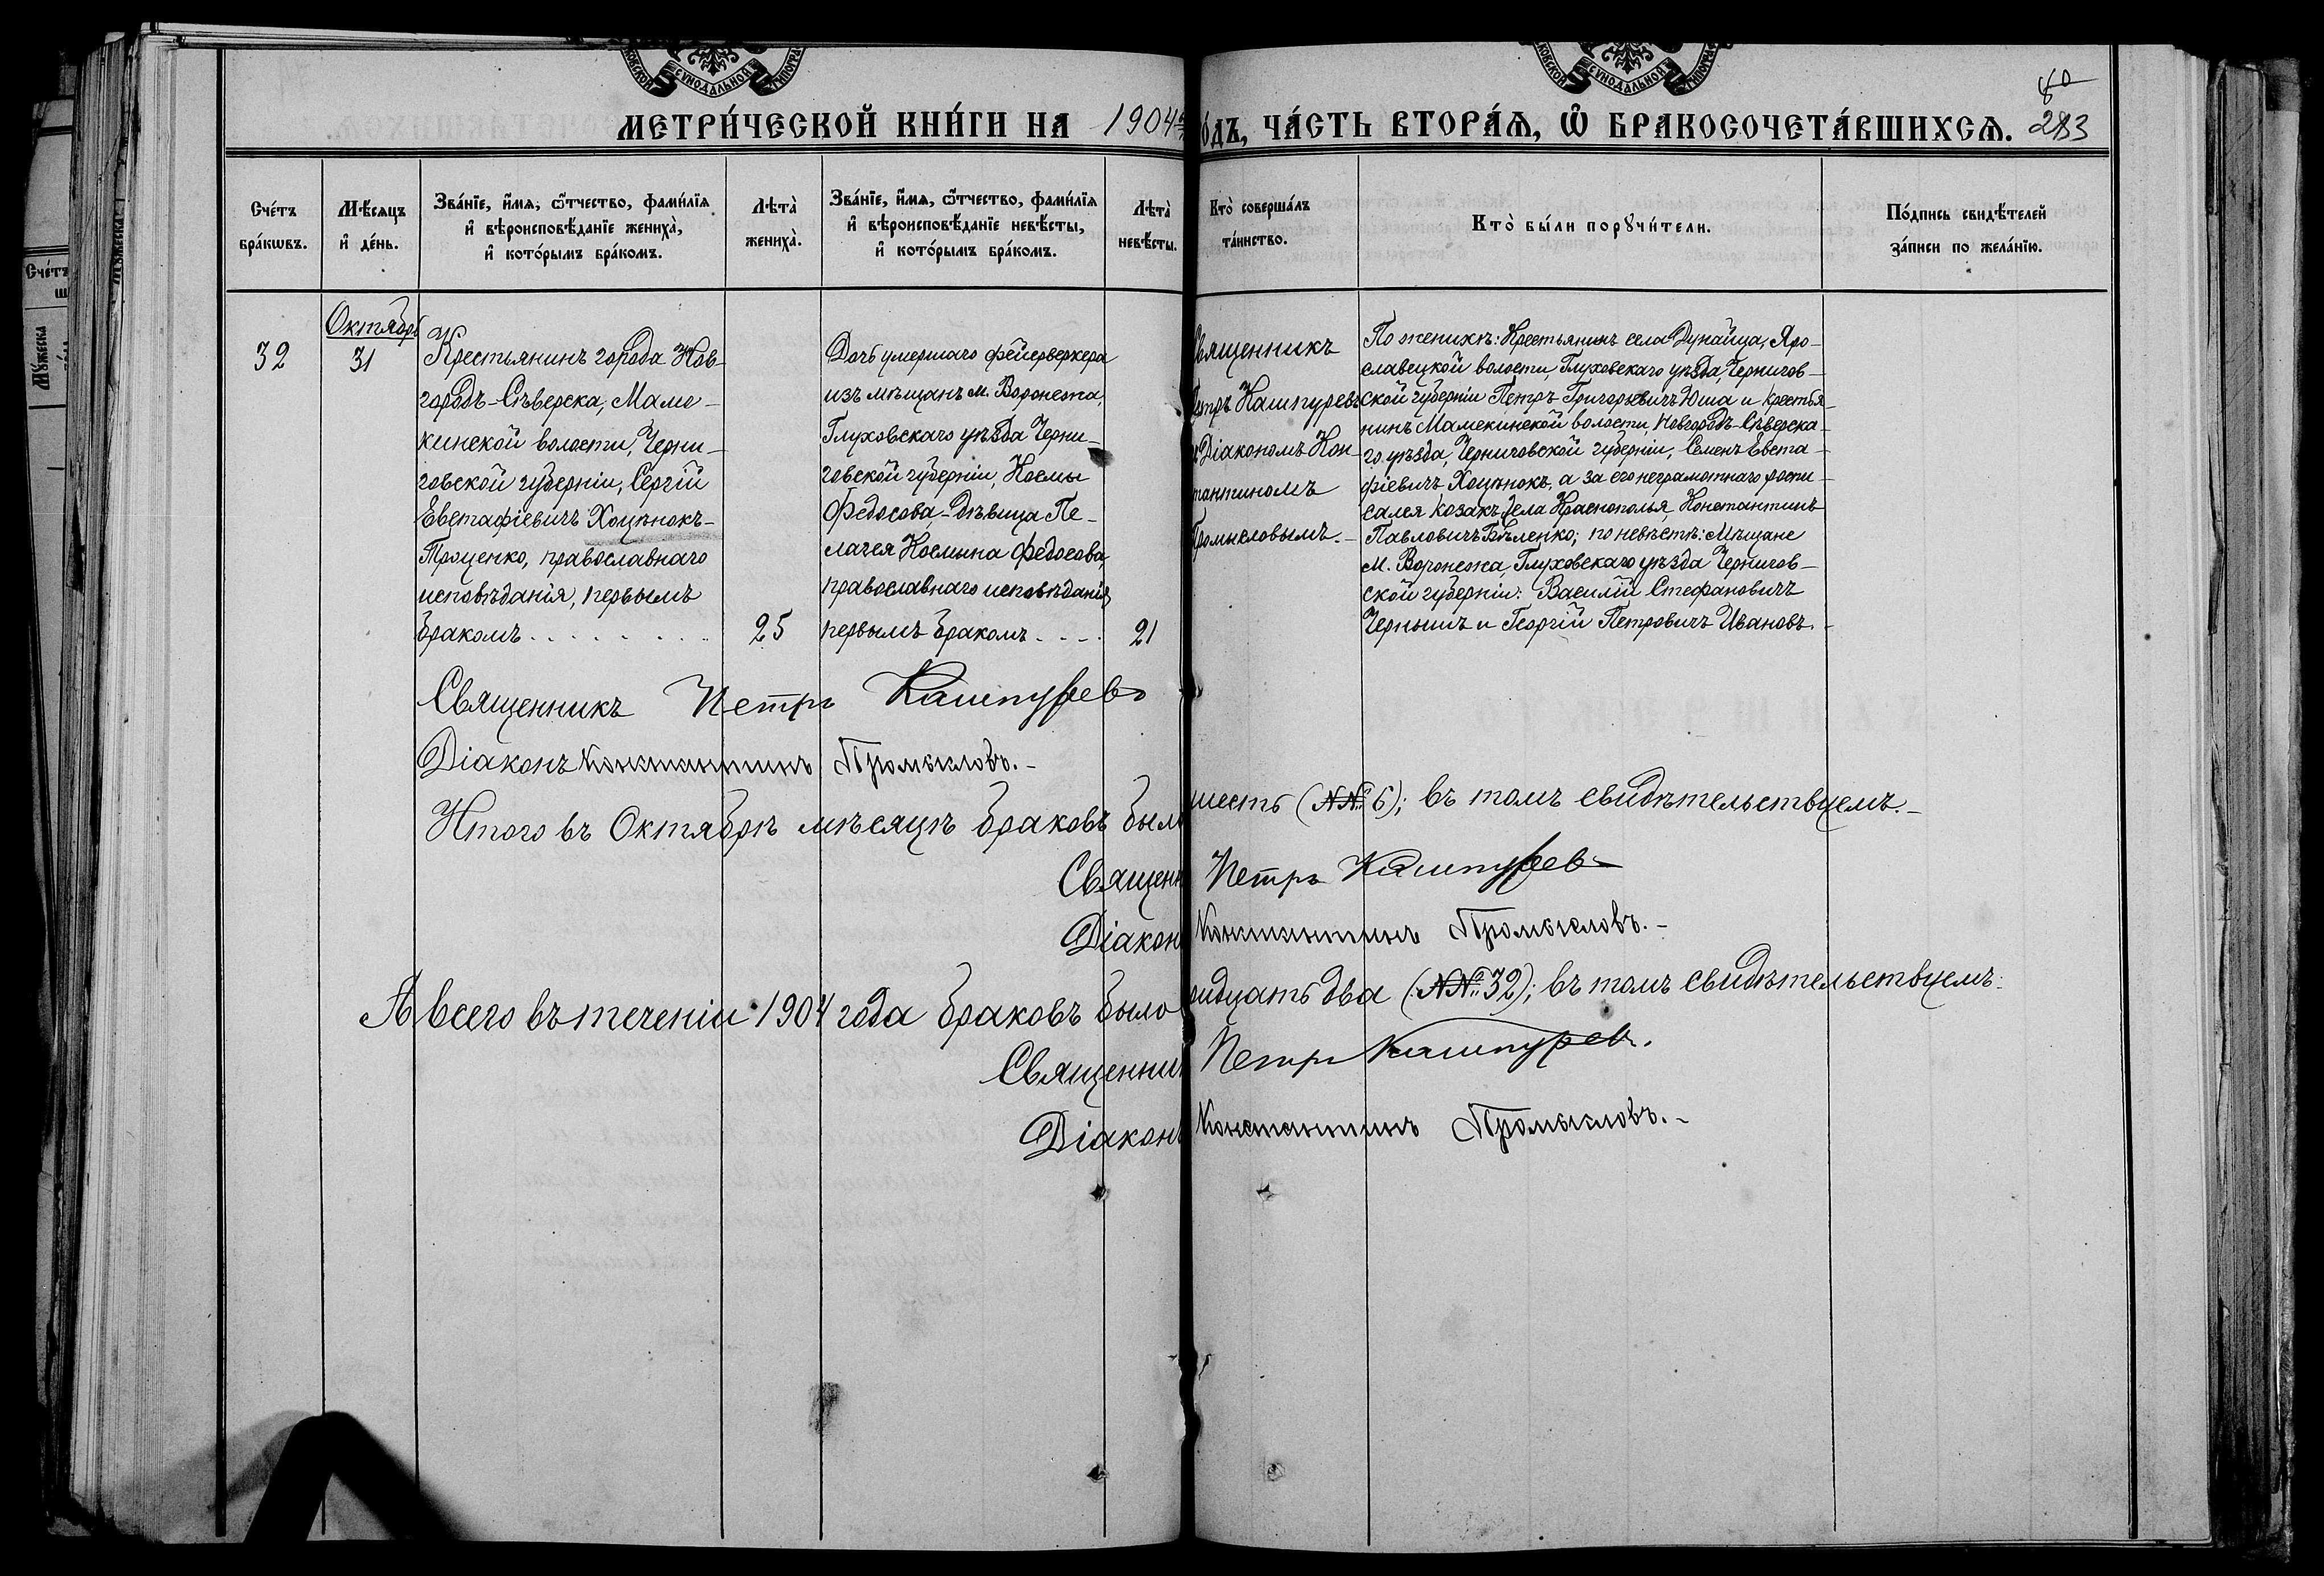 МЕТРИ́ЧЕСКОЙ КНИ́ГИ НА 1904 годъ, ЧА́СТЬ ВТОРА́Ѧ, Ѽ БРАКОСОЧЕТА́ВШИХСѦ.
80
283
Сче́тъ бра́кωвъ.
Мѣ́сѧцъ и҆ де́нь.
Зва́нїе, и҆́мѧ, ѻ҆́тчество, фами́лїѧ и҆ вѣроисповѣ́данїе жениха̀, и҆ кото́рымъ бра́комъ.
Лѣта̀ жениха̀.
Зва́нїе, и҆́мѧ, ѻ҆́тчество, фами́лїѧ и҆ вѣроисповѣ́данїе невѣ́сты, и҆ кото́рымъ бра́комъ.
Лѣта̀ невѣ́сты.
Кто̀ соверша́лъ та́инство.
Кто̀ бы́ли порꙋчи́тели.
По́дпись свидѣ́телей за́писи по жела́нїю.
32
Октябрь
31
Крестьянинъ города Нов-
городъ-Сѣверска, Маме-
кинской волости, Черни-
говской губерніи, Сергій
Евстафіевичъ Хоцѣнокъ-
Троценко, православнаго
исповѣданія, первымъ
бракомъ
25
Дочь умершаго фейерверкера
изъ мѣщанъ м. Воронежа,
Глуховскаго уѣзда Черни-
говской губерніи, Космы
Федосова,-дѣвица Пе-
лагея Косьмина Федосова,
православнаго исповѣданія
первымъ бракомъ
21
Священникъ
Петръ Кашпуревъ
и Діакономъ Кон-
стантиномъ
Промысловымъ.-
По женихѣ: Крестьянинъ села Дунайца, Яро-
славецкой волости, Глуховскаго уѣзда, Чернигов-
ской губерніи Петръ Григорьевичъ Юша и крестья-
нинъ Мамекинской волости, Новгородъ-Сѣверска-
го уѣзда, Черниговской губерніи, Семенъ Евста-
фіевичъ Хоцѣнокъ, а за его неграмотнаго распи-
сался козакъ села Краснополья, Константинъ
Павловичъ Бѣленко; по невѣстѣ: Мѣщане
м. Воронежа, Глуховскаго уѣзда Чернигов-
ской губерніи: Василій Стефановичъ
Чернышъ и Георгій Петровичъ Ивановъ.
Священникъ Петръ Кашпуревъ
Діаконъ Константинъ Промысловъ.-
Итого въ Октябрѣ мѣсяцѣ браковъ было шесть (№№ 6); въ томъ свидѣтельствуемъ.-
Священникъ Петръ Кашпуревъ
Діаконъ Константинъ Промысловъ.-
А всего въ теченіи 1904 года браковъ было тридцать два (№№ 32); въ томъ свидѣтельствуемъ:
Священникъ Петръ Кашпуревъ.
Діаконъ Константинъ Промысловъ.-